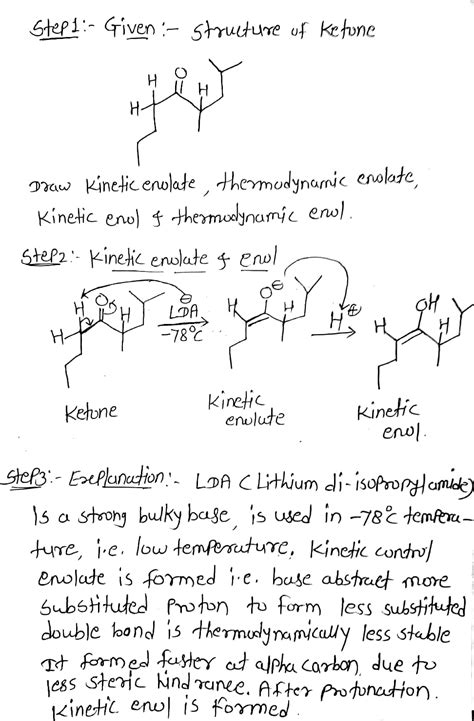 Step1:- Given:- Structure of Ketone
H O H
H
Draw Kinetic enolate, thermodynamic enolate,
Kinetic enol & thermodynamic enol.
Step2:- Kinetic enolate & enol
H O H
H
⊖
LDA
-78°C
H O⊖ H
H⊕
H OH H
Ketone
Kinetic
enolate
Kinetic
enol.
Step3:- Explanation:- LDA (Lithium di-isopropylamide)
Is a strong bulky base, is used in -78°C tempera-
ture, i.e. low temperature, Kinetic control
enolate is formed i.e. base abstract more
substituted proton to form less substituted
double bond is thermodynamically less stable
It formed faster at alpha carbon, due to
less steric hindrance. After protonation.
Kinetic enol is formed.